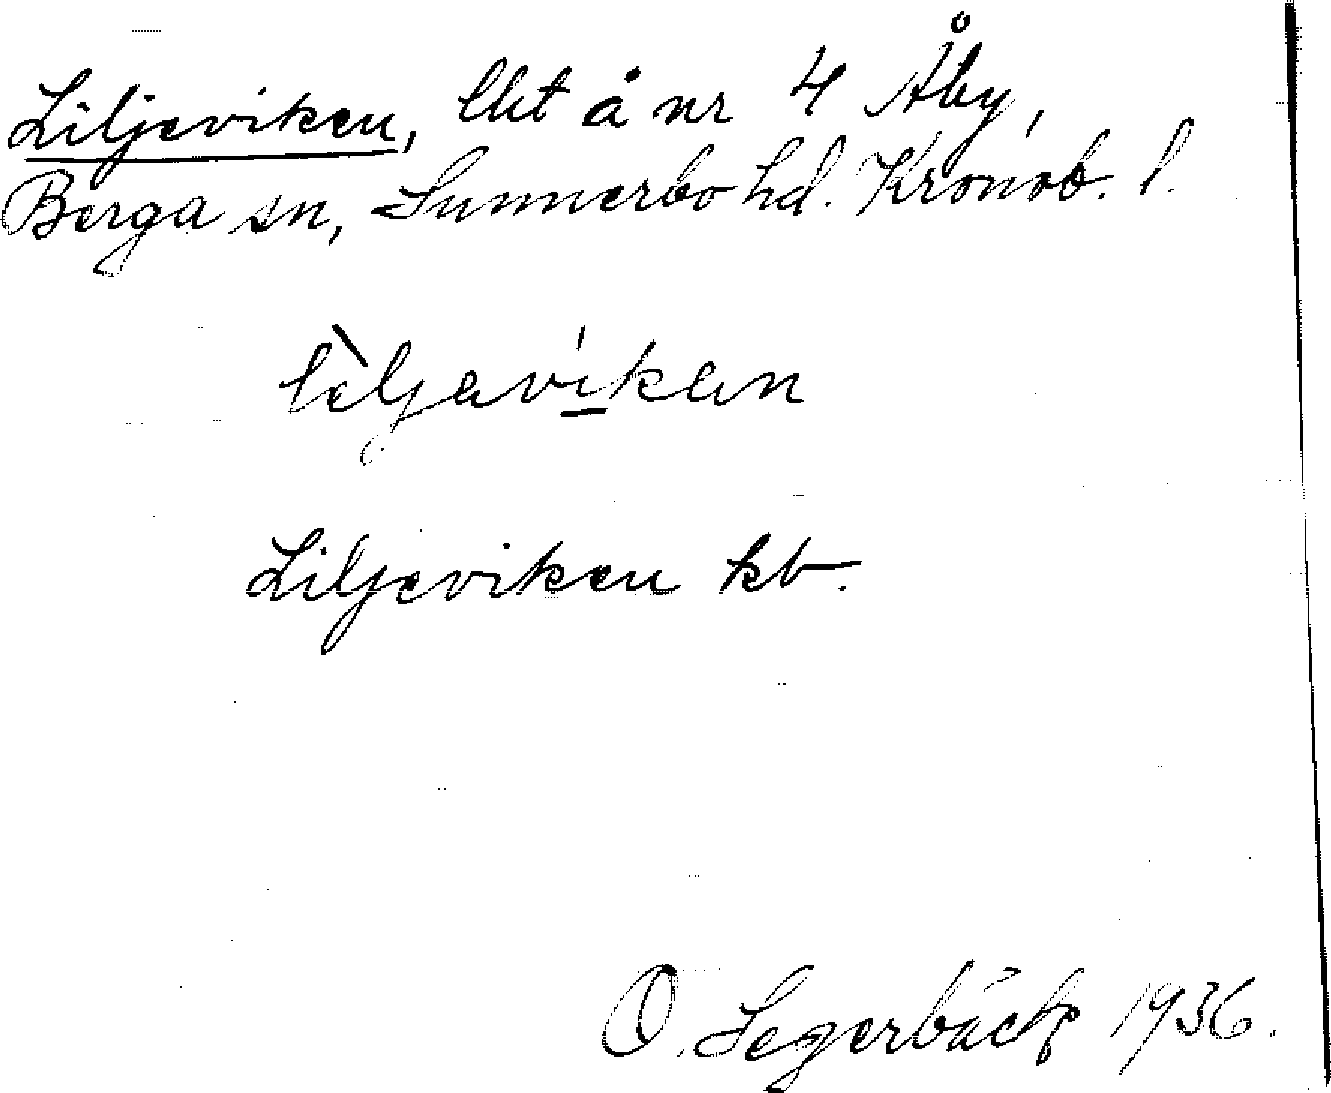 Liljeviken, lht å nr 4 Åby,
Berga sn, Sunnerbo hd. Kronob. l.
lèljavíkan
Liljeviken kb.
O. Segerbäck 1936.